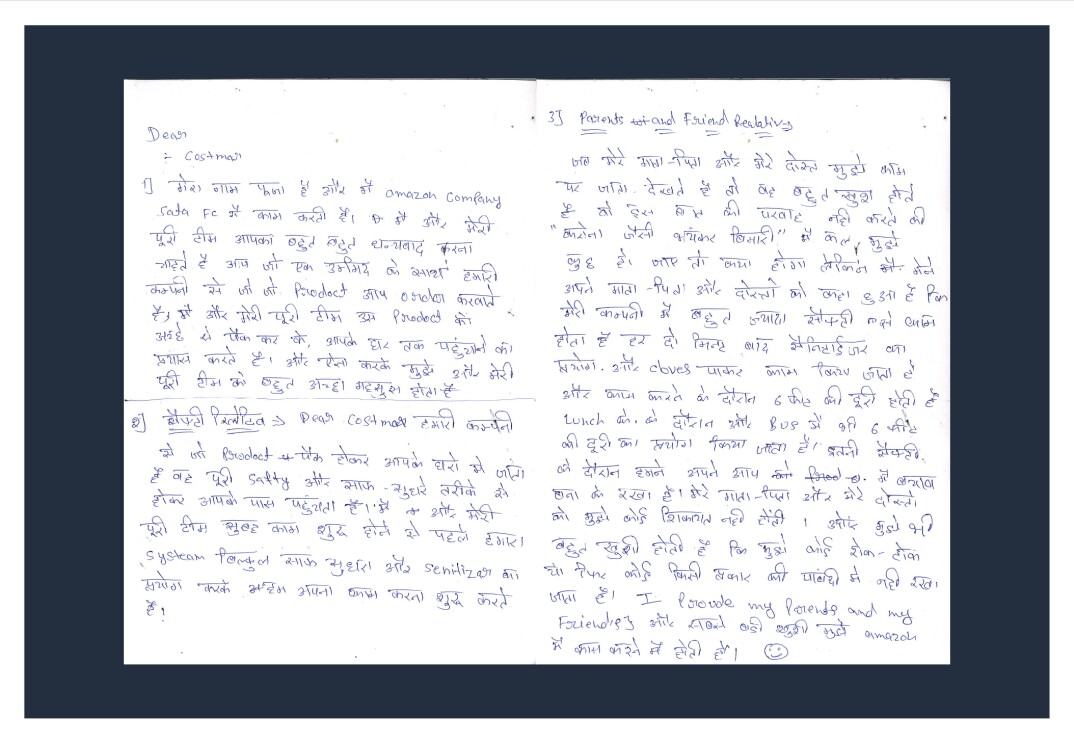 Dear
:- Costmar
1] मेरा नाम फजा है और मैं amazon Company
Sada FC में काम करती हूँ। मैं और मेरी
पूरी टीम आपका बहुत बहुत धन्यबाद करना
चाहते है आप जो एक उम्मिद के साथ हमारी
कम्पनी से जो जो Product आप order करवाते
है, मैं और मेरी पूरी टीम उस Product को
अच्छे से पैक कर के, आपके घर तक पहुंचाने का
प्रयास करते है। और ऐसा करके मुझे और मेरी
पूरी टीम को बहुत अच्छा महसुस होता है
2] सैफ्टी रिलेटिव => Dear Costmar हमारी कम्पनी
से जो Product पैक होकर आपके घरो मे जाता
है वह पूरी Saftty और साफ-सुथरे तरीके से
होकर आपके पास पहुंचता है। मैं और मेरी
पूरी टीम सुबह काम शुरू होने से पहले हमारा
Systeam बिल्कुल साफ सुथरा और Senitizar का
प्रयोग करके हम अपना काम करना शुरू करते
है!
3] Parents and Friend Realativ
जब मेरे माता-पिता और मेरे दोस्त मुझे काम
पर जाता देखते है तो वह बहुत खुश होते
है वो इस बात की परवाह नही करते की
"करोना जैसी भयंकर बिमारी" में कल मुझे
कुछ हो जाए तो क्या होगा लेकिन मैने
अपने माता-पिता और दोस्तो को कहा हुआ है कि
मेरी कम्पनी में बहुत ज्यादा सैफ्टी से काम
होता है हर दो मिनट बाद सैनिटाईजर का
प्रयोग और cloves पाकर काम किया जाता है
और काम करते के दौरान 6 फीट की दूरी होती है
Lunch के दौरान और Bus में भी 6 फीट
की दूरी का प्रयोग किया जाता है। इतनी सैफ्टी
के दौरान हमने अपने आप में बचाव
बना के रखा है। मेरे माता-पिता और मेरे दोस्तो
को मुझे कोई शिकायत नही होती। और मुझे भी
बहुत खुशी होती है कि मुझे कोई रोक-टोक
या फिर कोई किसी प्रकार की पाबंदी में नही रखा
जाता है। I Proude my Parents and my
Friends और सबसे बड़ी खुशी मुझे amazon
में काम करने में होती है।